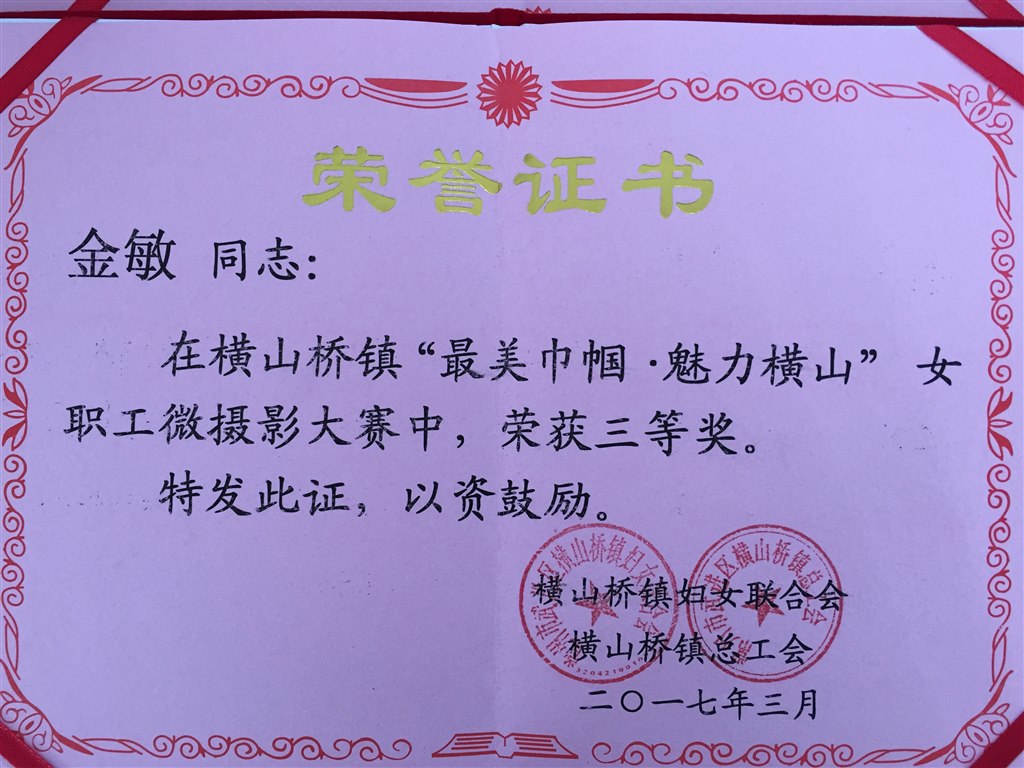 荣誉证书
金敏 同志：
在横山桥镇“最美巾帼·魅力横山”女
职工微摄影大赛中，荣获三等奖。
特发此证，以资鼓励。
横山桥镇妇女联合会
横山桥镇总工会
二〇一七年三月